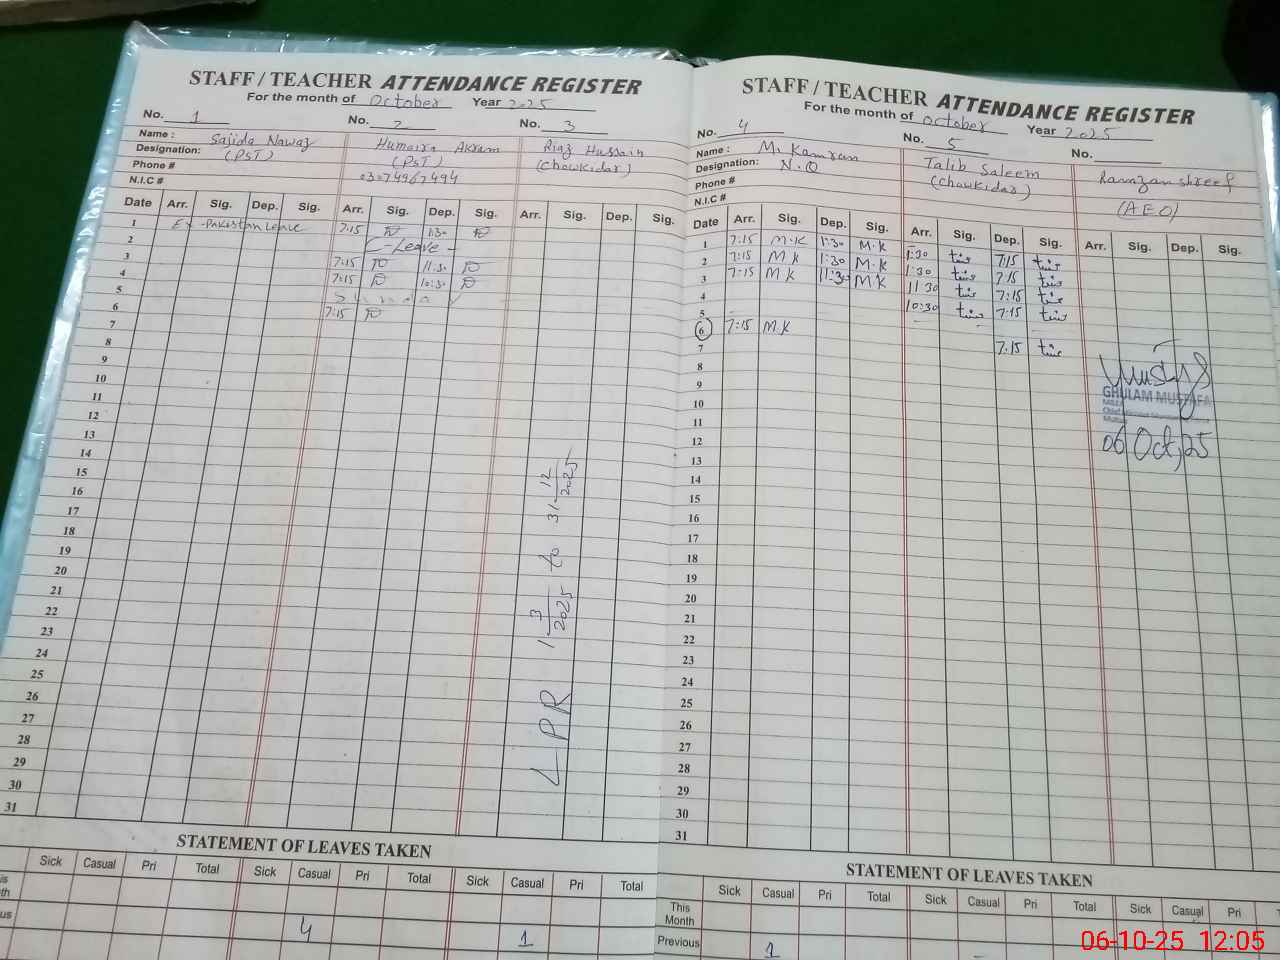 STAFF / TEACHER ATTENDANCE REGISTER
For the month of October Year 2025
No. 1 No. 2 No. 3
Name : Sajida Nawaz Humaira Akram Riaz Hussain
Designation: (PST) (PST) (Chowkidar)
Phone # 03074967494
N.I.C #
Date Arr. Sig. Dep. Sig. Arr. Sig. Dep. Sig. Arr. Sig. Dep. Sig.
1 Ex-Pakistan Leave 7:15 1:30
2 C-Leave
3 7:15 11:30
4 7:15 10:30
5 Sunday
6 7:15
7
8
9
10
11
12
13
14
15
16
17
18
19
20
21
22
23
24
25
26
27
28
29
30
31
LPR 1-3-2025 to 31-12-2025
STATEMENT OF LEAVES TAKEN
Sick Casual Pri Total Sick Casual Pri Total Sick Casual Pri Total
4 1
STAFF / TEACHER ATTENDANCE REGISTER
For the month of October Year 2025
No. 4 No. 5 No.
Name : M. Kamran Talib Saleem Ramzan shreef
Designation: N.Q (Chowkidar) (AEO)
Phone #
N.I.C #
Date Arr. Sig. Dep. Sig. Arr. Sig. Dep. Sig. Arr. Sig. Dep. Sig.
1 7:15 M.K 1:30 M.K 1:30 7:15
2 7:15 M.K 1:30 M.K 1:30 7:15
3 7:15 M.K 11:30 M.K 11:30 7:15
4 10:30 7:15
5
6 7:15 M.K 7:15
7
8
9
10
11
12
13
14
15
16
17
18
19
20
21
22
23
24
25
26
27
28
29
30
31
GHULAM MUSTAFA
06 Oct, 25
STATEMENT OF LEAVES TAKEN
Sick Casual Pri Total Sick Casual Pri Total Sick Casual Pri
This Month
Previous 1
06-10-25 12:05